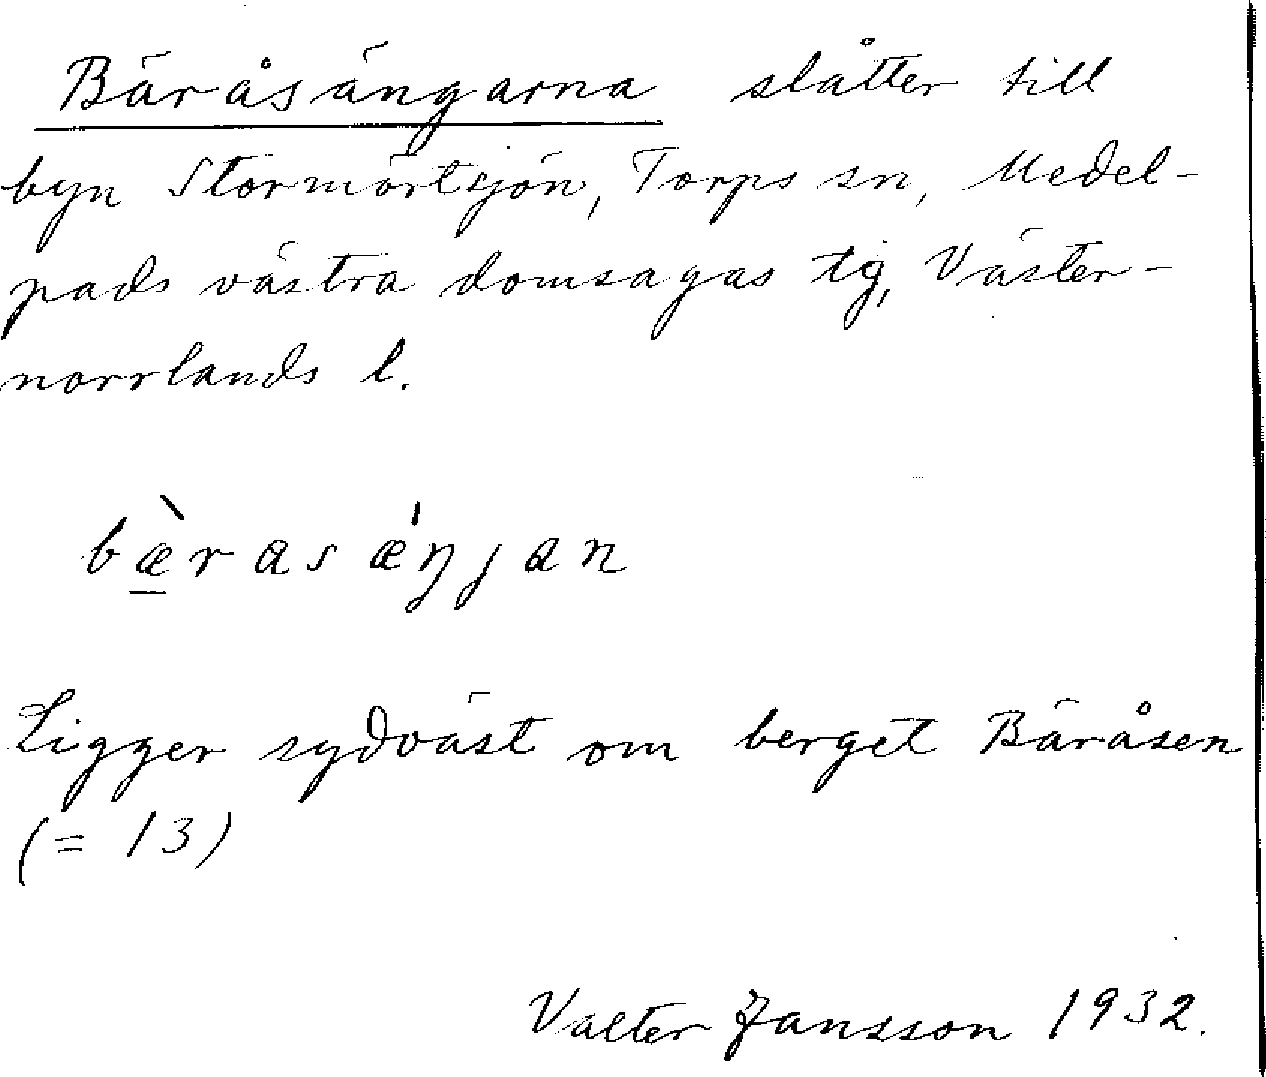 Bäråsängarna slåtter till
byn Stormörtsjön, Torps sn, Medel-
pads västra domsagas tg, Väster-
norrlands l.
bæ̀rasæ̍ŋjan
Ligger sydväst om berget Bäråsen
(= 13)
Valter Jansson 1932.